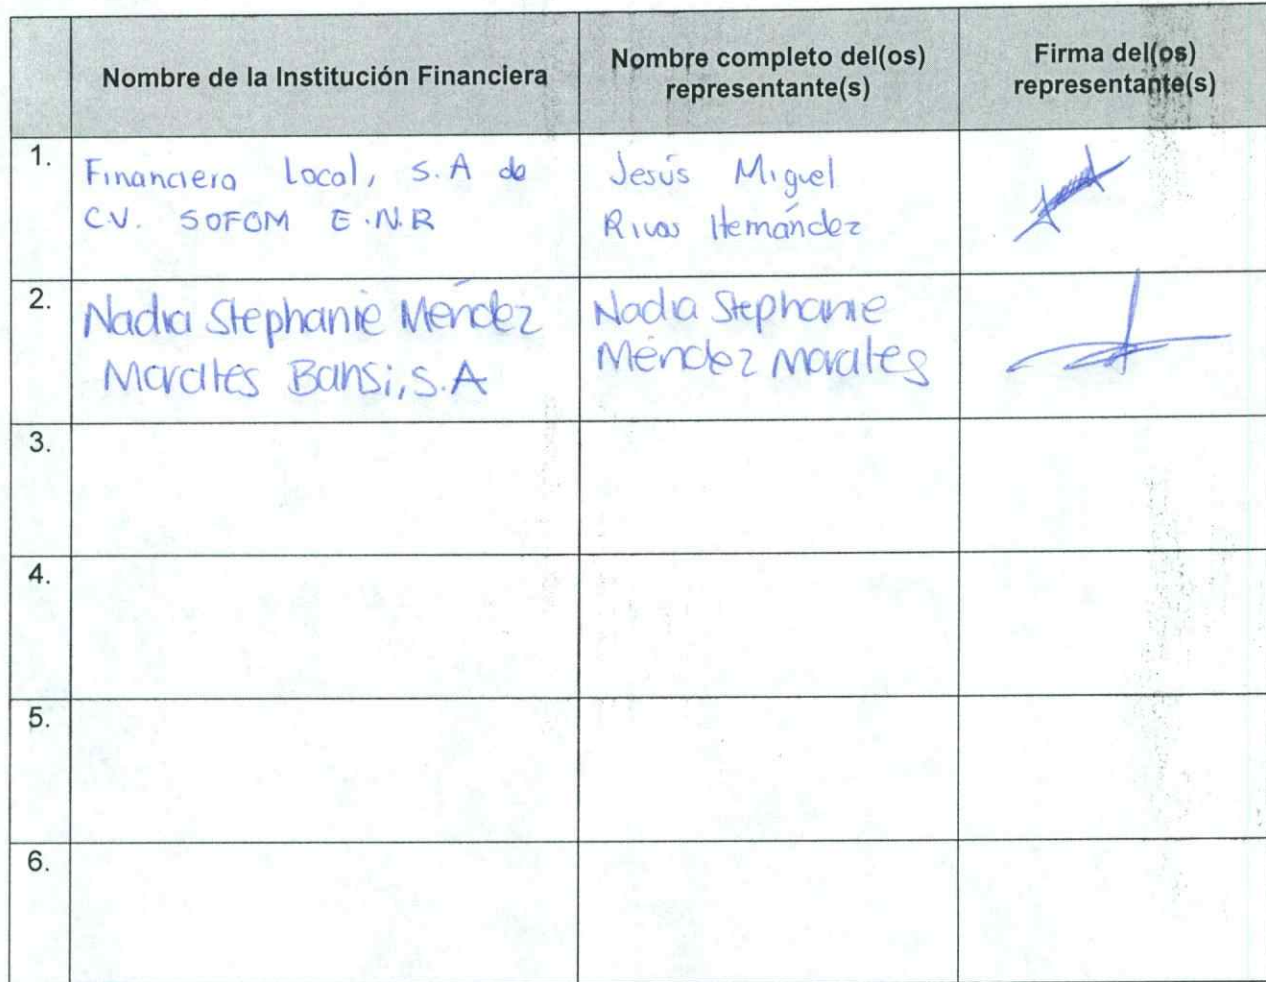 Nombre de la Institución Financiera
Nombre completo del(os)
representante(s)
Firma del(os)
representante(s)
1.
Financiera Local, S.A de
C.V. SOFOM E.N.R
Jesús Miguel
Rivas Hernández
2.
Nadia Stephanie Méndez
Morales Bansi, S.A
Nadia Stephanie
Méndez Morales
3.
4.
5.
6.